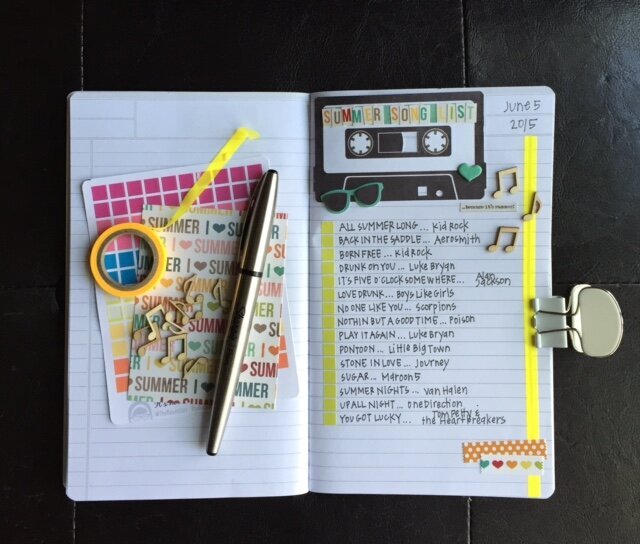 SUMMER SONG LIST
June 5
2015
...because it's summer!
ALL SUMMER LONG... Kid Rock
BACK IN THE SADDLE... Aerosmith
BORN FREE... Kid Rock
DRUNK ON YOU... Luke Bryan
IT'S FIVE O'CLOCK SOMEWHERE... Alan Jackson
LOVE DRUNK... Boys Like Girls
NO ONE LIKE YOU... Scorpions
NOTHIN BUT A GOOD TIME... Poison
PLAY IT AGAIN... Luke Bryan
PONTOON... Little Big Town
STONE IN LOVE... Journey
SUGAR... Maroon 5
SUMMER NIGHTS... Van Halen
UP ALL NIGHT... One Direction
YOU GOT LUCKY... Tom Petty & the Heartbreakers
SUMMER I
I SUMMER
SUMMER I SUMMER
I SUMMER
SUMMER
SUMMER
SUMMER I
SUMMER I
SUMMER